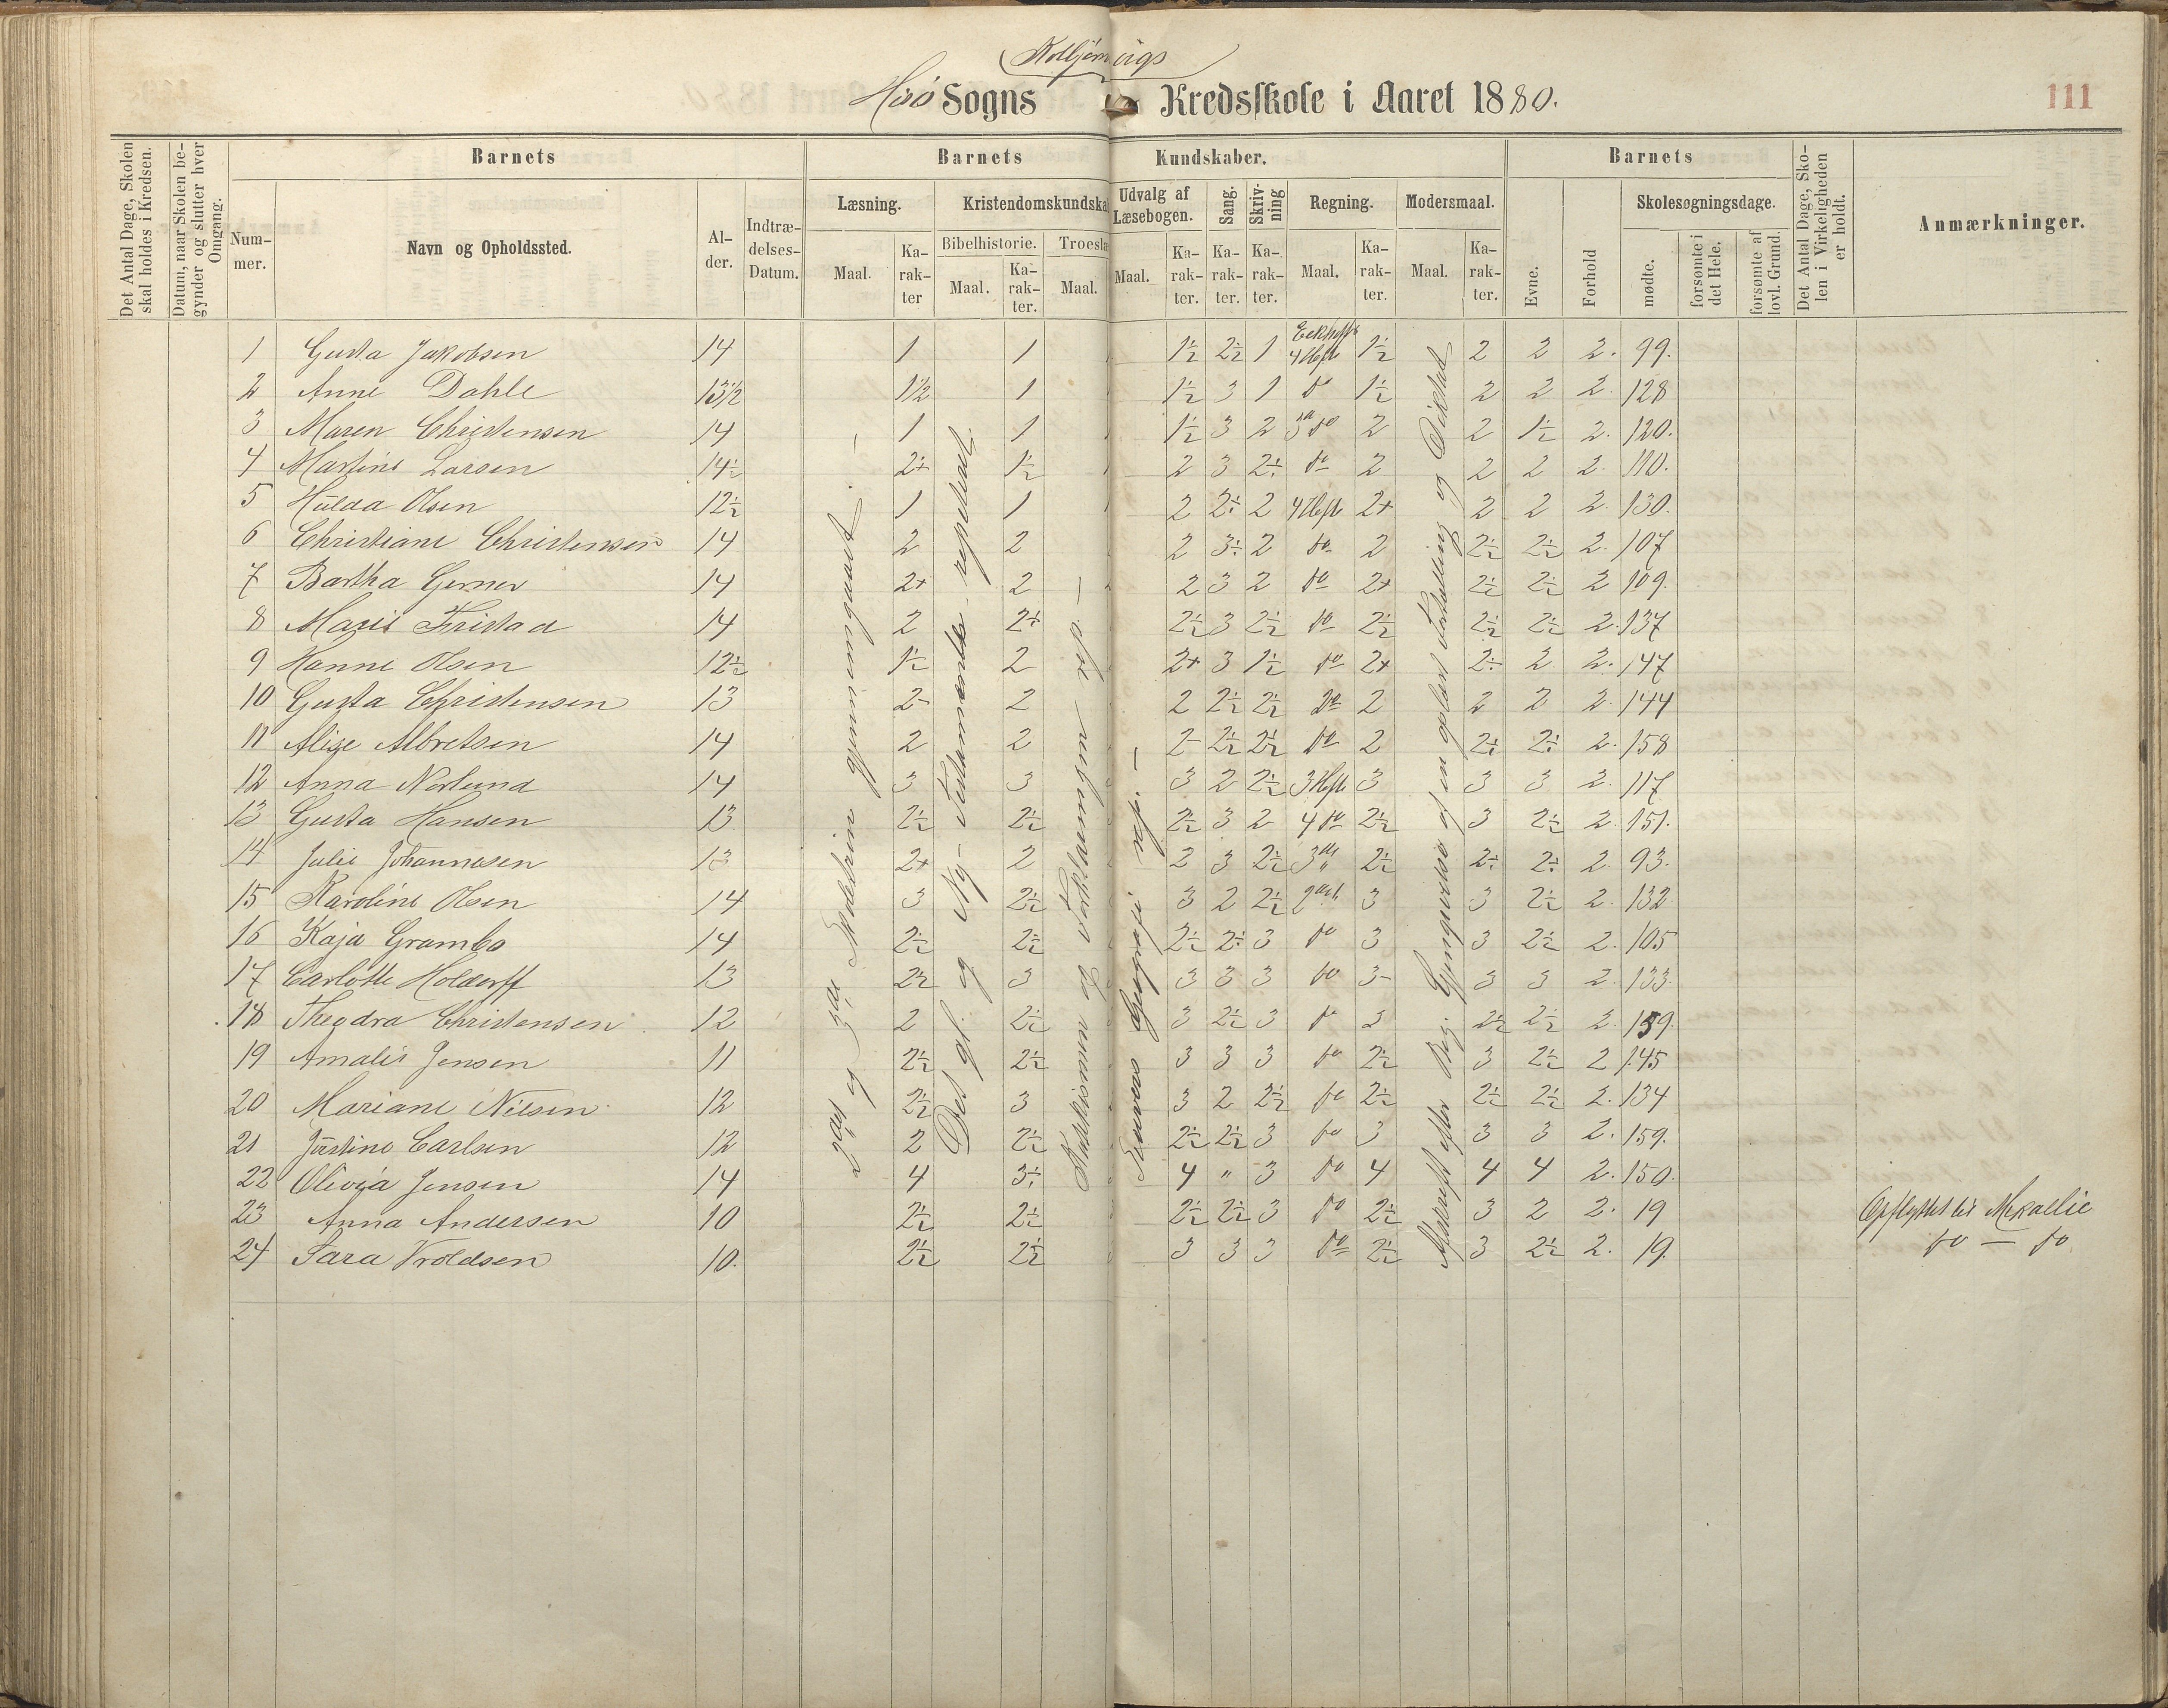 Kolbjørnsvigs
Hisø Sogns Kredsskole i Aaret 1880.
111
Det Antal Dage, Skolen skal holdes i Kredsen.
Datum, naar Skolen begynder og slutter hver Omgang.
Barnets
Barnets Kundskaber.
Barnets
Det Antal Dage, Skolen i Virkeligheden er holdt.
Anmærkninger.
Nummer.
Navn og Opholdssted.
Alder.
Indtrædelses-Datum.
Læsning.
Kristendomskundska
Udvalg af Læsebogen.
Sang.
Skrivning
Regning.
Modersmaal.
Evne.
Forhold
Skolesøgningsdage.
Bibelhistorie.
Troeslæ
mødte.
forsømte i det Hele.
forsømte af lovl. Grund.
Maal. Karakter Maal. Karakter. Maal. Maal. Karakter. Karakter. Karakter. Maal. Karakter. Maal. Karakter.
1 Gusta Jakobsen 14 1 1 1½ 2½ 1 4 Hefte 1½ 2 2 2. 99.
2 Anne Dahle 13½ 1½ 1 1½ 3 1 do 1½ 2 2 2. 128
3 Maren Christensen 14 1 1 1½ 3 2 3die do 2 2 1½ 2. 120.
4 Martine Larsen 14½ 2+ 1½ 2 3 2÷ do 2 2 2 2. 110.
5 Hulda Olsen 12½ 1 1 2 2÷ 2 4 Hefte 2+ 2 2 2. 130.
6 Christiane Christensen 14 2 2 2 3÷ 2 do 2 2½ 2½ 2. 107
7 Bertha Gerner 14 2+ 2 2 3 2 do 2+ 2½ 2½ 2 109.
8 Marie Fristad 14 2 2+ 2½ 3 2½ do 2½ 2½ 2½ 2. 137
9 Hanne Olsen 12½ 1½ 2 2+ 3 1½ do 2+ 2÷ 2 2. 147
10 Gusta Christensen 13 2- 2 2 2½ 2½ do 2 2 2 2. 144
11 Alise Albretsen 14 2 2 2- 2½ 2½ do 2 2÷ 2÷ 2. 158
12 Anna Norlund 14 3 3 3 2 2½ 3 Hefte 3 3 3 2. 117
13 Gusta Hansen 13 2½ 2½ 2½ 3 2 4 do 2½ 3 2½ 2. 151.
14 Julie Johannesen 13 2+ 2 2 3 2½ 3die 2½ 2÷ 2÷ 2. 93.
15 Karoline Olsen 14 3 2½ 3 2 2½ 2det 3 3 2½ 2. 132
16 Kaja Grambo 14 2½ 2½ 2½ 2÷ 3 do 3 3 2½ 2. 105
17 Carlotte Holdorff 13 2½ 3 3 3 3 do 3- 3 3 2. 133.
18 Theodra Christensen 12 2 2½ 3 2½ 3 do 3 2½ 2½ 2. 159.
19 Amalie Jensen 11 2½ 2½ 3 3 3 do 2½ 3 2½ 2 145
20 Mariane Nilsen 12 2½ 3 3 2 2½ do 2½ 2½ 2½ 2. 134
21 Jøstine Carlsen 12 2 2½ 2½ 2½ 3 do 3 3 3 2. 159.
22 Olivia Jensen 14 4 3÷ 4 " 3 do 4 4 4 2. 150.
23 Anna Andersen 10 2½ 2½ 2½ 2½ 3 do 2½ 3 2 2. 19 Opflyttet til
24 Sara Troldsen 10. 2½ 2½ 3 3 3 do 2½ 3 2½ 2. 19. do — do
2det og 3die gjennemgaaet. —
Det gl. og Ny-Testamente repeteret.
Katekismen og Forklaringen rep. —
Geografi rep. —
Afskrift efter Bog. Gjengivelse af en oplæst Fortælling og Diktat